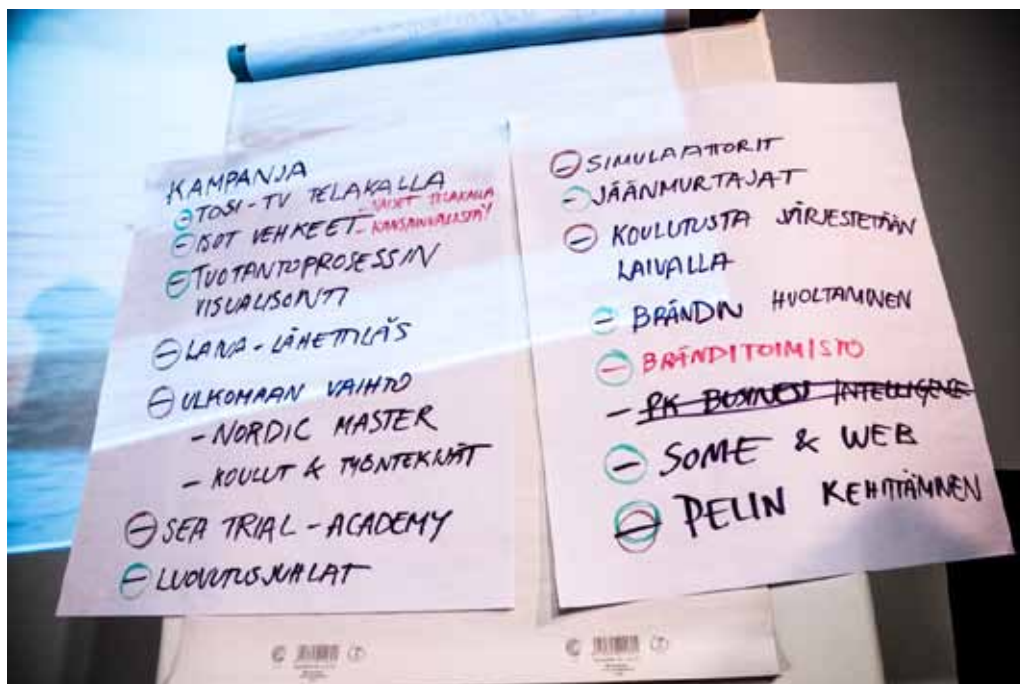 KAMPANJA
- TOSI-TV TELAKALLA
- ISOT VEHKEET - NAISET TELAKALLA
- KANSAINVÄLISTYY
- TUOTANTOPROSESSIN
VISUALISOINTI
- LAIVA-LÄHETTILÄS
- ULKOMAAN VAIHTO
- NORDIC MASTER
- KOULUT & TYÖNTEKIJÄT
- SEA TRIAL - ACADEMY
- LUOVUTUSJUHLAT
- SIMULAATTORIT
- JÄÄNMURTAJAT
- KOULUTUSTA JÄRJESTETÄÄN
LAIVALLA
- BRÄNDIN HUOLTAMINEN
- BRÄNDITOIMISTO
- PK BUSINESS INTELLIGENCE
- SOME & WEB
- PELIN KEHITTÄMINEN